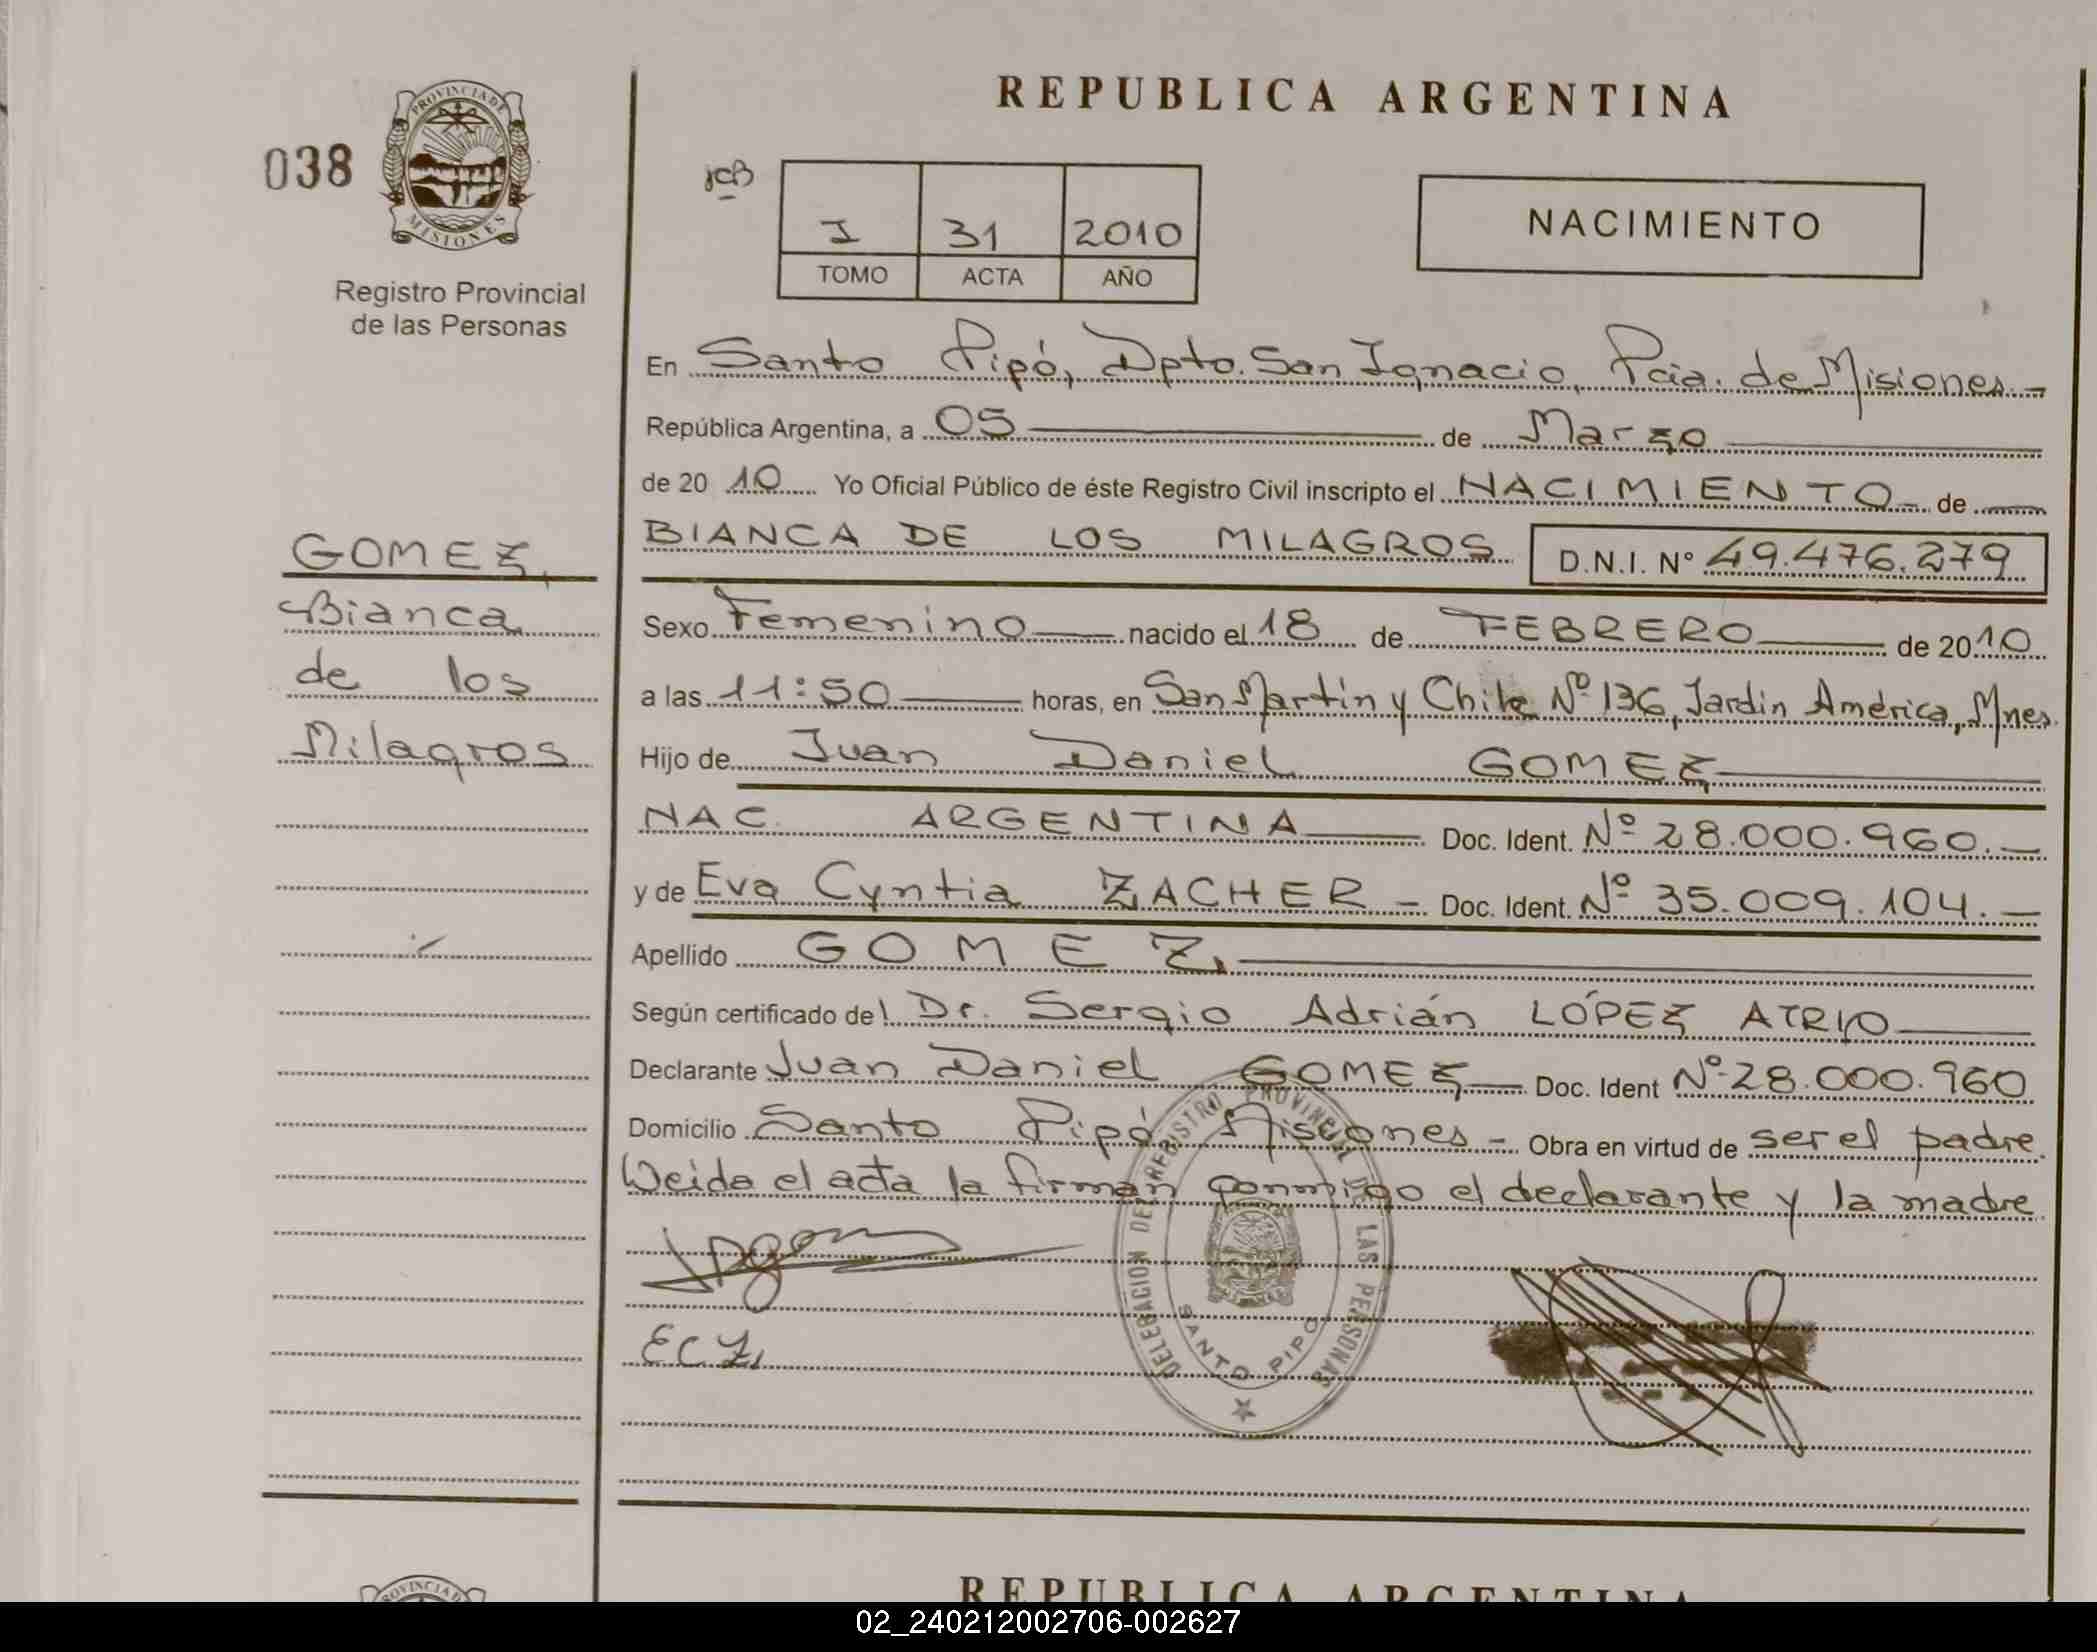 REPUBLICA ARGENTINA
038
PROVINCIA DE
MISIONES
Registro Provincial
de las Personas
JCB
I 31 2010
TOMO ACTA AÑO
NACIMIENTO
En Santo Pipó, Dpto. San Ignacio, Pcia. de Misiones.-
República Argentina, a 05 de Marzo
de 2010 Yo Oficial Público de éste Registro Civil inscripto el NACIMIENTO - de
BIANCA DE LOS MILAGROS D.N.I. Nº 49.476.279
GOMEZ,
Bianca
de los
Milagros
Sexo Femenino nacido el 18 de FEBRERO de 2010
a las 11:50 horas, en San Martín y Chile Nº 136, Jardín América, Mnes.
Hijo de Juan Daniel GOMEZ
NAC. ARGENTINA Doc. Ident. Nº 28.000.960.-
y de Eva Cyntia ZACHER - Doc. Ident. Nº 35.009.104.-
Apellido GOMEZ
Según certificado del Dr. Sergio Adrián LÓPEZ ATRIO
Declarante Juan Daniel GOMEZ Doc. Ident Nº 28.000.960
Domicilio Santo Pipó Misiones - Obra en virtud de ser el padre.
Leida el acta la firman conmigo el declarante y la madre.
ECZ
DELEGACION DEL REGISTRO PROVINCIAL DE LAS PERSONAS
SANTO PIPO
REPUBLICA ARGENTINA
02_240212002706-002627